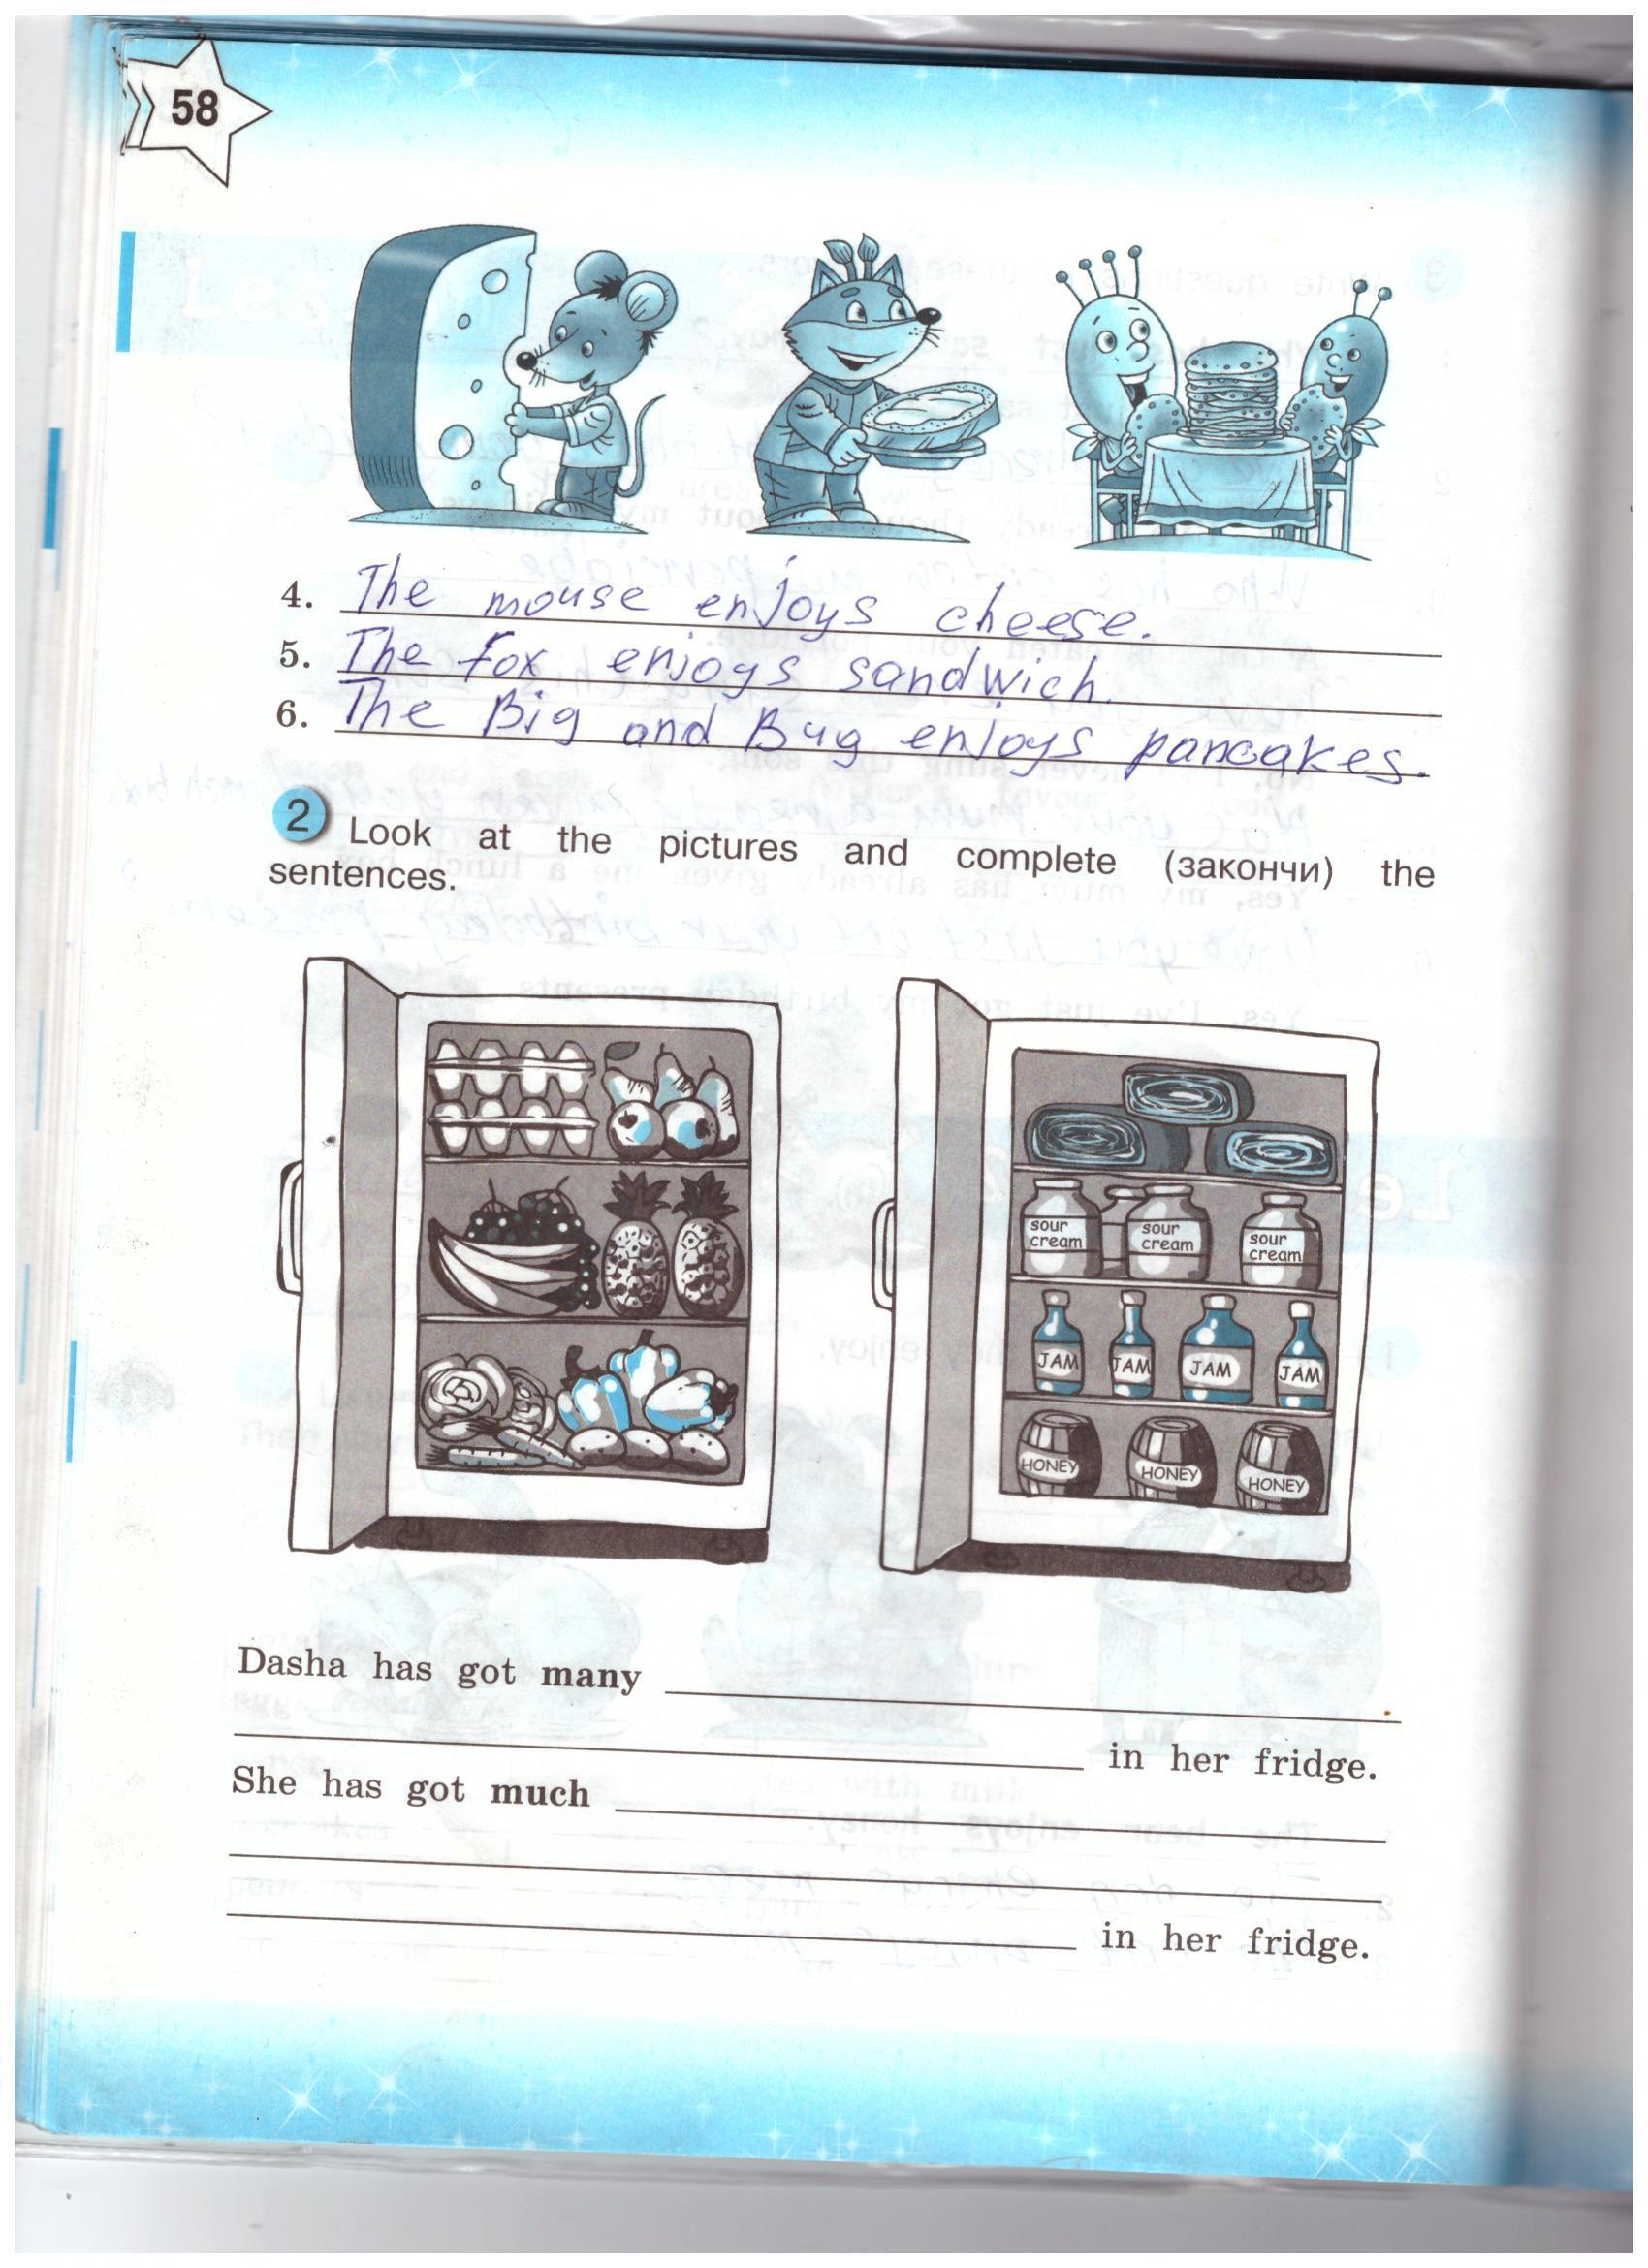 58
4. The mouse enjoys cheese.
5. The fox enjoys sandwich.
6. The Big and Bug enjoys pancakes.
2 Look at the pictures and complete (закончи) the
sentences.
sour cream sour cream sour cream
JAM JAM JAM JAM
HONEY HONEY HONEY
Dasha has got many
in her fridge.
She has got much
in her fridge.